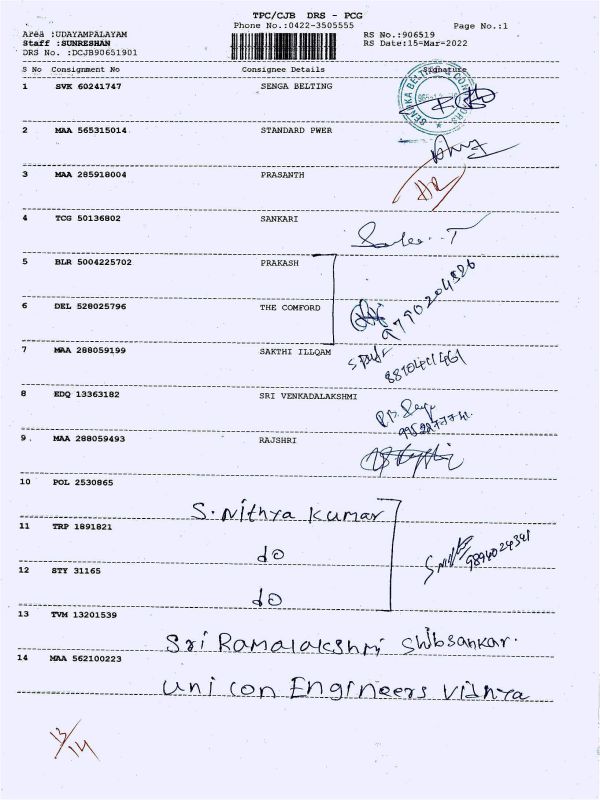 TPC/CJB DRS - PCG
Phone No.:0422-3505555
Page No.:1
Area :UDAYAMPALAYAM
RS No.:906519
Staff :SUNRESHAN
RS Date:15-Mar-2022
DRS No. :DCJB90651901
S No Consignment No Consignee Details Signature
1 SVK 60241747 SENGA BELTING
2 MAA 565315014 STANDARD PWER
3 MAA 285918004 PRASANTH
4 TCG 50136802 SANKARI
5 BLR 5004225702 PRAKASH
6 DEL 528025796 THE COMFORD
9790204526
7 MAA 288059199 SAKTHI ILLQAM
8 EDQ 13363182 SRI VENKADALAKSHMI
9 . MAA 288059493 RAJSHRI
10 POL 2530865
S. Nithya Kumar
11 TRP 1891821
do
9894024341
12 STY 31165
do
13 TVM 13201539
Sri Ramalakshmi Shibsankar.
14 MAA 562100223
Unicon Engineers Vidhya
13/14